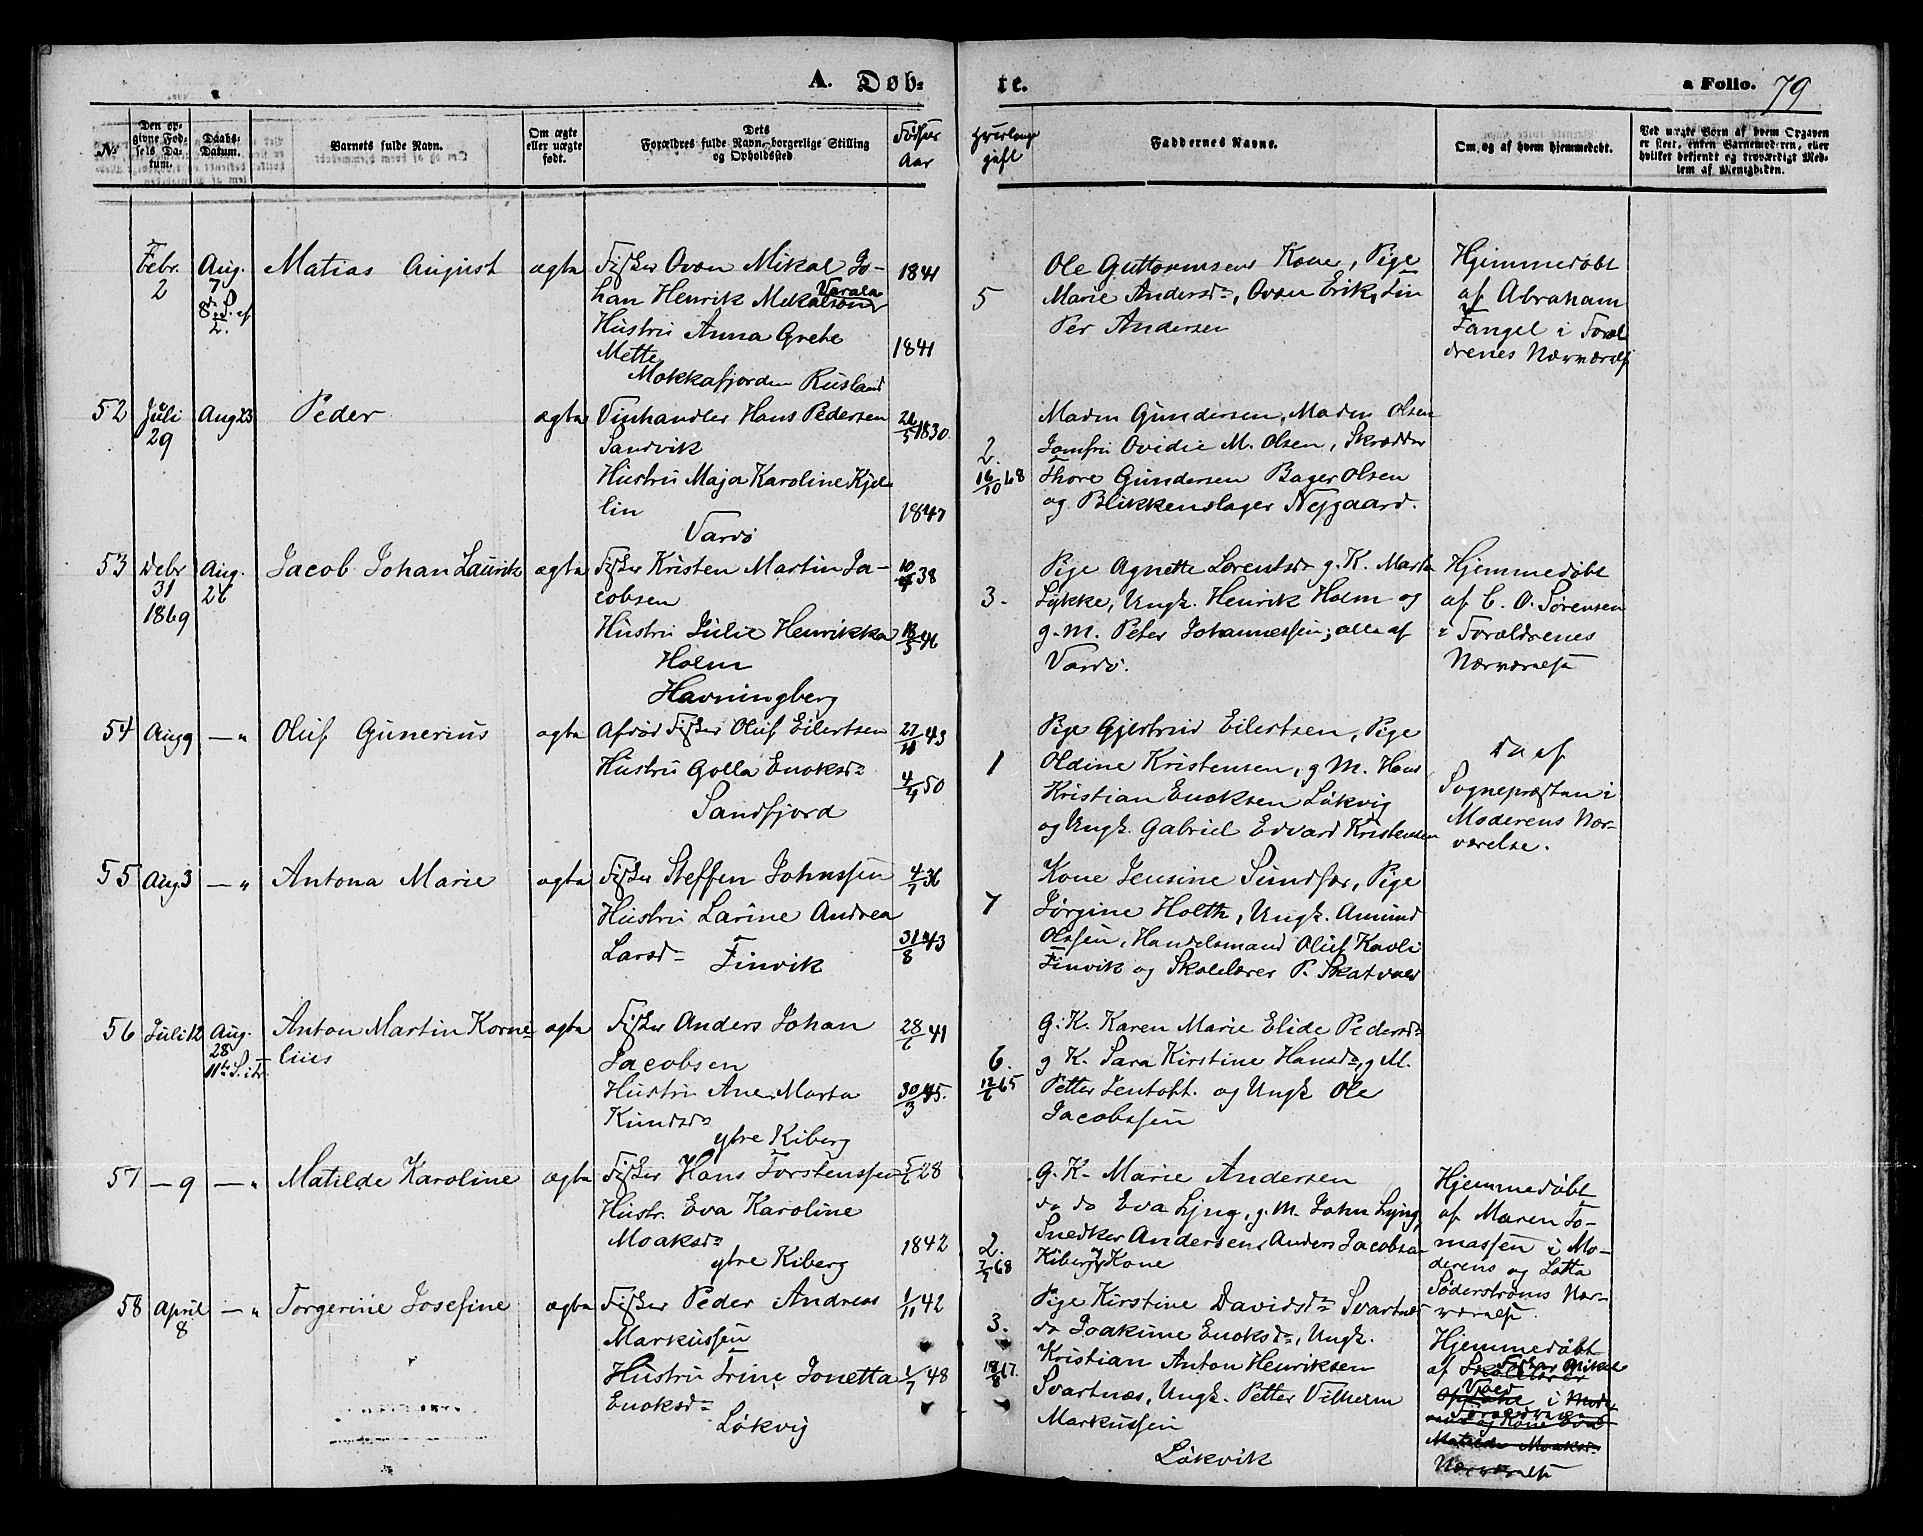 A. Døb-
te.
a Folio. 79
No
Den opgivne Fødsels Datum.
Daabs-Datum.
Barnets fulde Navn.
Om ægte eller uægte født.
Dets Forældres fulde Navn, borgerlige Stilling og Opholdssted.
Fødsels Aar
Hvorlænge gift
Faddernes Navne.
Om og af hvem hjemmedøbt.
Ved uægte Børn af hvem Opgaven er skeet, enten Barnemoderen, eller hvilket bekjendt og troværdigt Medlem af Menigheden.
Febr. 2
Aug. 7
8 S. ef
Matias August
ægta
Fisker Oven Mikal Jo-
han Henrik Mikalson
Varala
Hustru Anna Grete
Mette
Mokkafjorden Rusland
1841
1841
5
Ole Guttormsens Kone, Pige
Marie Andersdr, Oven Erik
Per Andersen
Hjemmedøbt
af Abraham
Fangel i Foræl
drenes Nærværelse
52
Juli 29
Aug 23
Peder
ægta
Vinhandler Hans Pedersen
Sandvik
Hustru Maja Karoline Kjel
lin
Vardø
22/5 1830
1847
2.
16/10 68
Madm Gundersen, Madm Olsen
Jomfru Ovidie M. Olsen, Skrædder
Thore Gundersen Bager Olsen
og Blikkenslager Nygaard.
53
Debr 31 1869
Aug. 26
Jacob Johan Laurits
ægta
Fisker Kristen Martin Ja-
cobsen
Hustru Julie Henrikka
Holm
Havningberg
38
46
3.
Pige Agnette Lorentsdr g. K. Marta
Lykke, Ungk. Henrik Holm og
g. M. Peter Johannessen, alle af
Vardø.
Hjemmedøbt
af C. O. Sørensen
i Forældrenes
Nærværelse
54
Aug 9
— "
Oluf Gunerius
ægta
Afdød Fisker Oluf Eilertsen
Hustru Golla Enoksdr
Sandfjord
27/10 43
4/9 50
1
Pige Gjertrud Eilertsen, Pige
Oldine Kristensen, g M. Hans
Kristian Enoksen Løkvig
og Ungk. Gabriel Edvard Kristensen
Do af
Sognepræsten i
Moderens Nær-
værelse.
55
Aug 3
— "
Antona Marie
ægta
Fisker Steffen Johnssen
Hustru Larine Andrea
Larsdr Finvik
36
31/8 43
7
Kone Jensine Sundfær, Pige
Jørgine Holth, Ungk. Amund
Olssen, Handelsmand Oluf Kavli
Finvik og Skolelærer P. Skatvold
56
Juli 12
Aug. 28
11te S. i Tr
Anton Martin Korne
lius
ægta
Fisker Anders Johan
Jacobsen
Hustru Ane Marta
Knudsdr
ytre Kiberg
28/6 41
30/3 45.
6.
12/6 65
G. K. Karen Marie Elide Pedersdr
g K. Sara Kirstine Hansdr, g M.
Petter Jentoft. og Ungk Ole
Jacobssen
57
— 9
— "
Matilde Karoline
ægta
Fisker Hans Torstenssen
Hustr. Eva Karoline
Moaksdr
ytre Kiberg
28
1842
2.
68
G. K. Marie Andersen
do do Eva Ljng, g. M. John Ljng,
Snedker Andersen, Anders Jacobsen
Kiberg, Kone
Hjemmedøbt
af Maren To-
massen i Mo-
derens og Lotta
Søderstrøms Nær-
værelse.
58
April 8
— "
Torgerine Josefine
ægta
Fisker Peder Andreas
Markussen
Hustru Trine Jonetta
Enoksdr
Løkvig
1/11 42
1/7 48
3.
18/8 67.
Pige Kirstine Davidsdr Svartnæs
do Joakime Enoksdr, Ungk.
Kristian Anton Henriksen
Svartnæs, Ungk. Petter Vilhelm
Markussen
Løkvik
Hjemmedøbt
af Fisker Mikal
i Mod
og Kone Eva
Matilde Moaksdr
Nærværelse